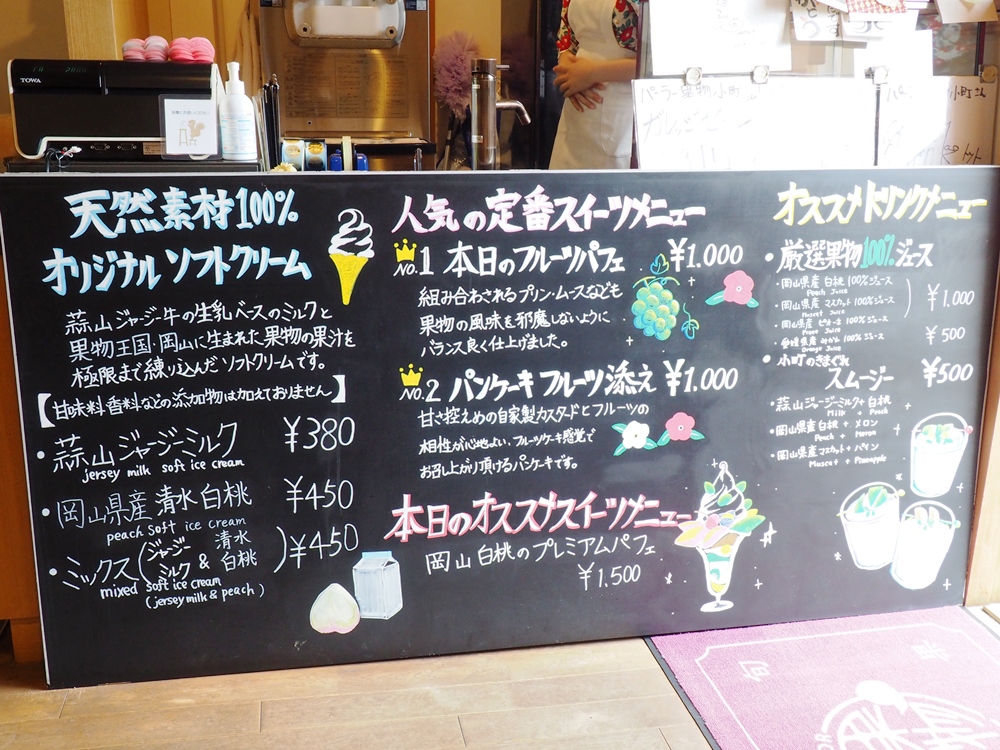 TOWA
天然素材100%
オリジナル ソフトクリーム
蒜山ジャージー牛の生乳ベースのミルクと
果物王国・岡山に生まれた果物の果汁を
極限まで練り込んだソフトクリームです。
【甘味料・香料などの添加物は加えておりません】
・蒜山ジャージーミルク ¥380
jersey milk soft ice cream
・岡山県産 清水白桃 ¥450
peach soft ice cream
・ミックス(ジャージーミルク & 清水白桃) ¥450
mixed soft ice cream
(jersey milk & peach)
人気の定番スイーツメニュー
NO.1 本日のフルーツパフェ ¥1.000
組み合わされるプリン・ムースなども
果物の風味を邪魔しないように
バランス良く仕上げました。
NO.2 パンケーキ フルーツ添え ¥1.000
甘さ控えめの自家製カスタードとフルーツの
相性が心地よい、フルーツケーキ感覚で
お召し上がり頂けるパンケーキです。
本日のオススメスイーツメニュー
岡山白桃のプレミアムパフェ
¥1.500
オススメドリンクメニュー
・厳選果物100%ジュース
・岡山県産 白桃 100%ジュース
Peach Juice
・岡山県産 マスカット 100%ジュース
Muscat Juice
¥1.000
・岡山県産 ピオーネ 100%ジュース
・愛媛県産 みかん 100%ジュース ¥500
Orange Juice
・小町のきまぐれ
スムージー ¥500
・蒜山ジャージーミルク+白桃
Milk + Peach
・岡山県産白桃 + メロン
Peach + Meron
・岡山県産マスカット+パイン
Muscat + Pineapple